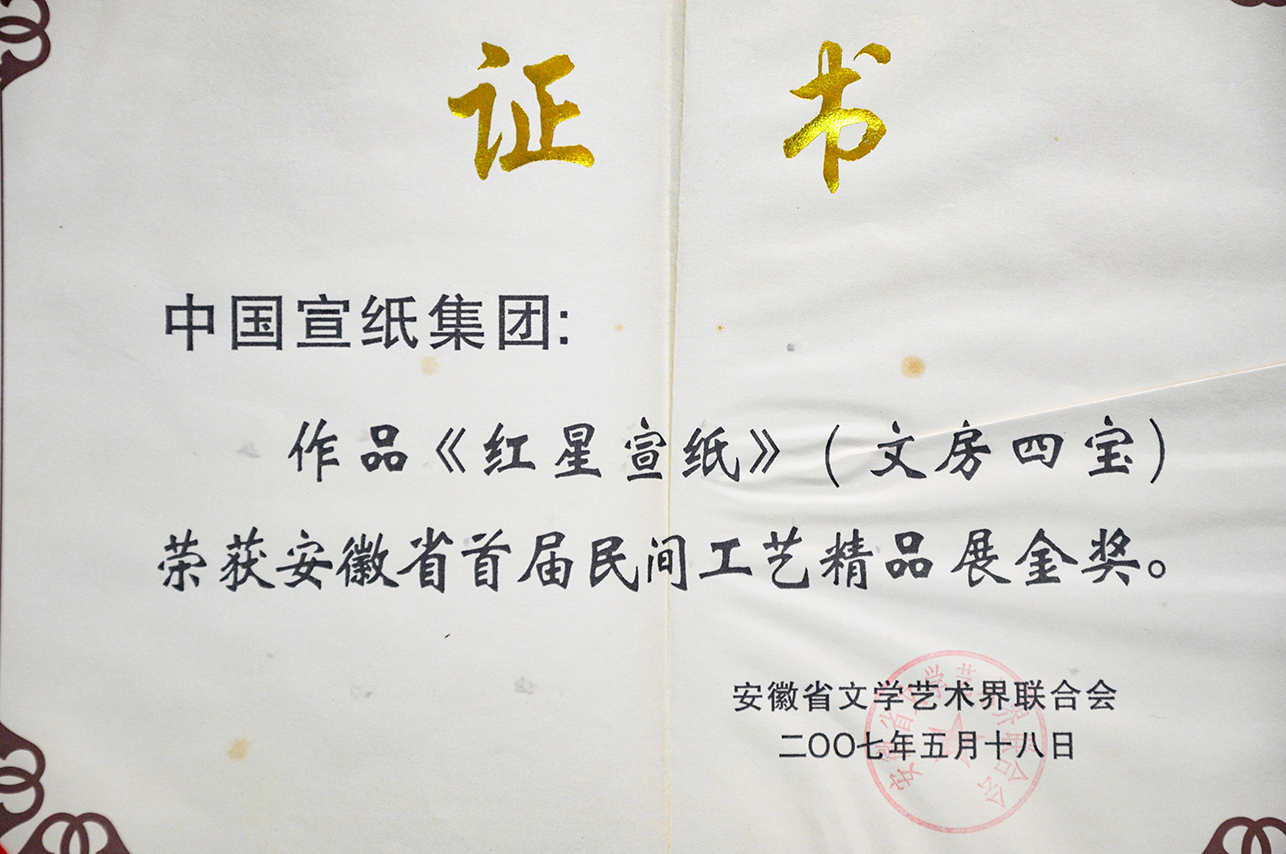 证书
中国宣纸集团:
作品《红星宣纸》(文房四宝)
荣获安徽省首届民间工艺精品展金奖。
安徽省文学艺术界联合会
二〇〇七年五月十八日
安徽省文学艺术界联合会